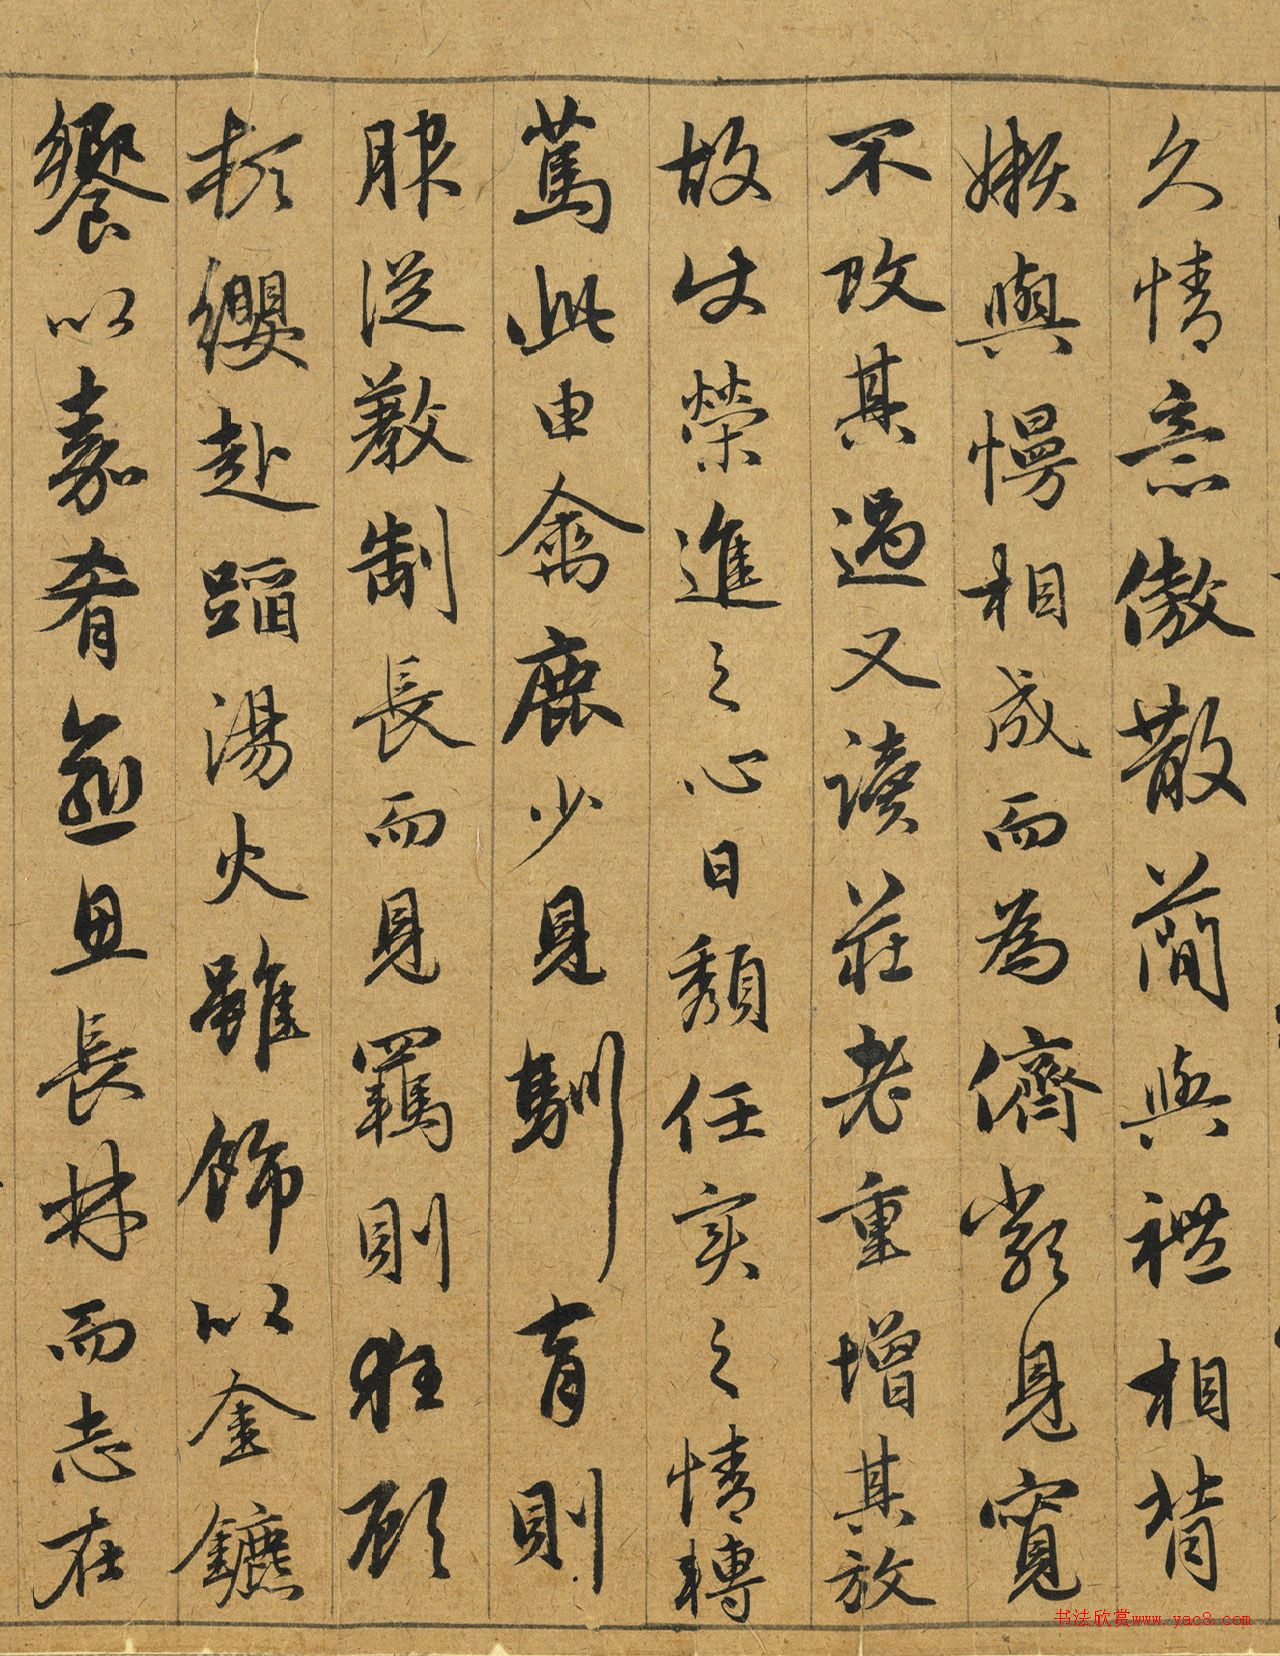 久情意傲散簡與禮相背
嬾與慢相成而為儕類見寬
不攻其過又讀莊老重增其放
故使榮進之心日頹任實之情轉
篤此由禽鹿少見馴育則
服從教制長而見羈則狂顧
頓纓赴蹈湯火雖飾以金鑣
饗以嘉肴愈思長林而志在
书法欣赏www.yac8.com